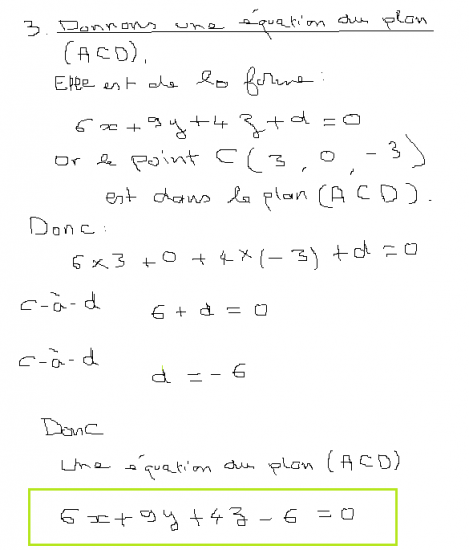 3. Donnons une équation du plan
(ACD).
Elle est de la forme :
6x + 9y + 4z + d = 0
or le point C(3, 0, -3)
est dans le plan (ACD).
Donc :
6×3 + 0 + 4×(-3) + d = 0
c-à-d 6 + d = 0
c-à-d d = -6
Donc
Une équation du plan (ACD)
6x + 9y + 4z - 6 = 0